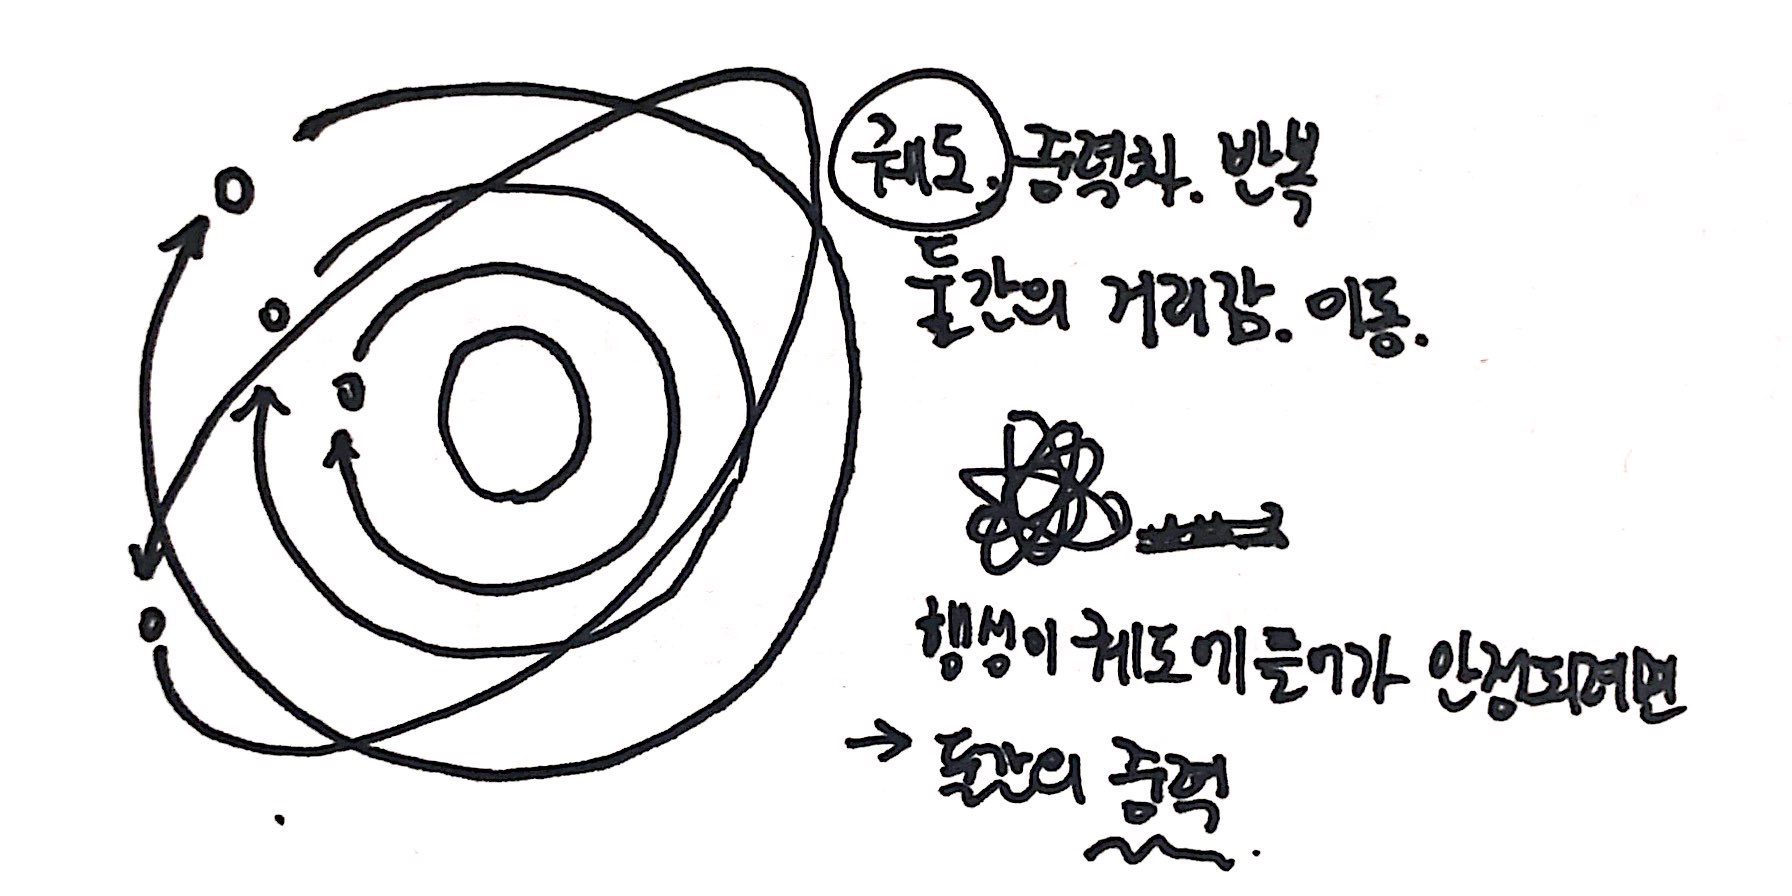 궤도. 중력차. 반복
둘간의 거리감. 이동.
행성이 궤도에 들어가 안정되려면
→ 둘간의 중력